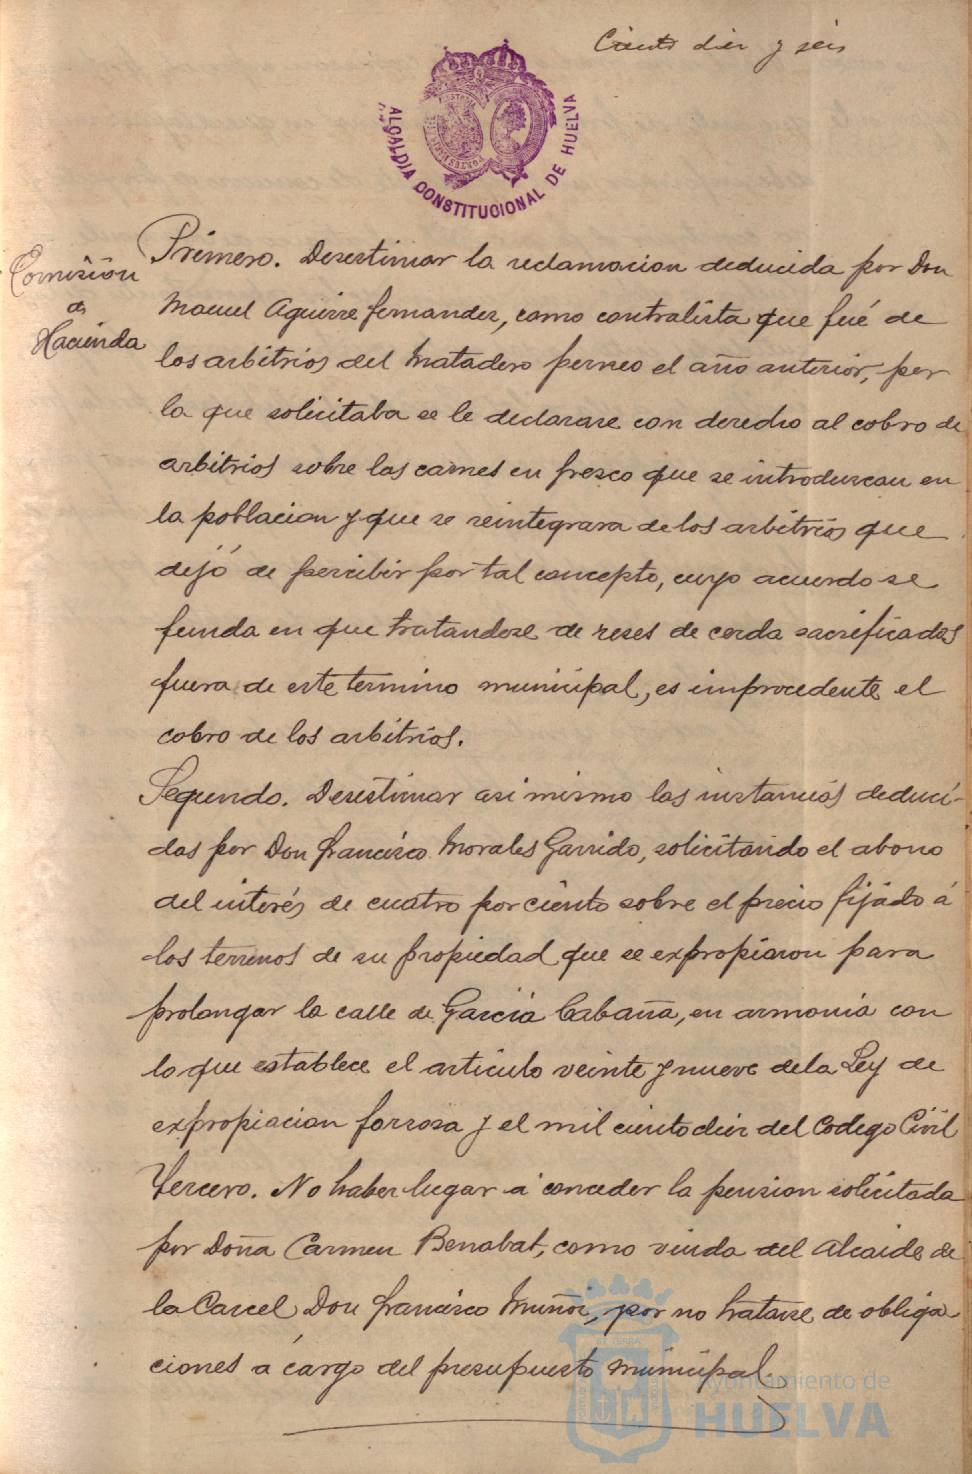 Ciento diez y seis
ALCALDIA CONSTITUCIONAL DE HUELVA
Comisión
de
Hacienda
Primero. Desestimar la reclamacion deducida por Don
Manuel Aguirre Fernandez, como contratista que fué de
los arbitrios del Matadero perneo el año anterior, por
la que solicitaba se le declarase con derecho al cobro de
arbitrios sobre las carnes en fresco que se introduzcan en
la poblacion y que se reintegrara de los arbitrios que
dejó de percibir por tal concepto, cuyo acuerdo se
funda en que tratandose de reses de cerda sacrificadas
fuera de este termino municipal, es improcedente el
cobro de los arbitrios.
Segundo. Desestimar asi mismo las instancias deduci-
das por Don Francisco Morales Garrido, solicitando el abono
del interés de cuatro por ciento sobre el precio fijado á
los terrenos de su propiedad que se expropiaron para
prolongar la calle de Garcia Cabaña, en armonia con
lo que establece el articulo veinte y nueve de la Ley de
expropiacion forzosa y el mil ciento diez del Codego Civil
Tercero. No haber lugar á conceder la pension solicitada
por Doña Carmen Benabat, como viuda del Alcaide de
la Carcel Don Francisco Muñoz, por no tratarse de obliga
ciones á cargo del presupuesto municipal.
Ayuntamiento de
HUELVA